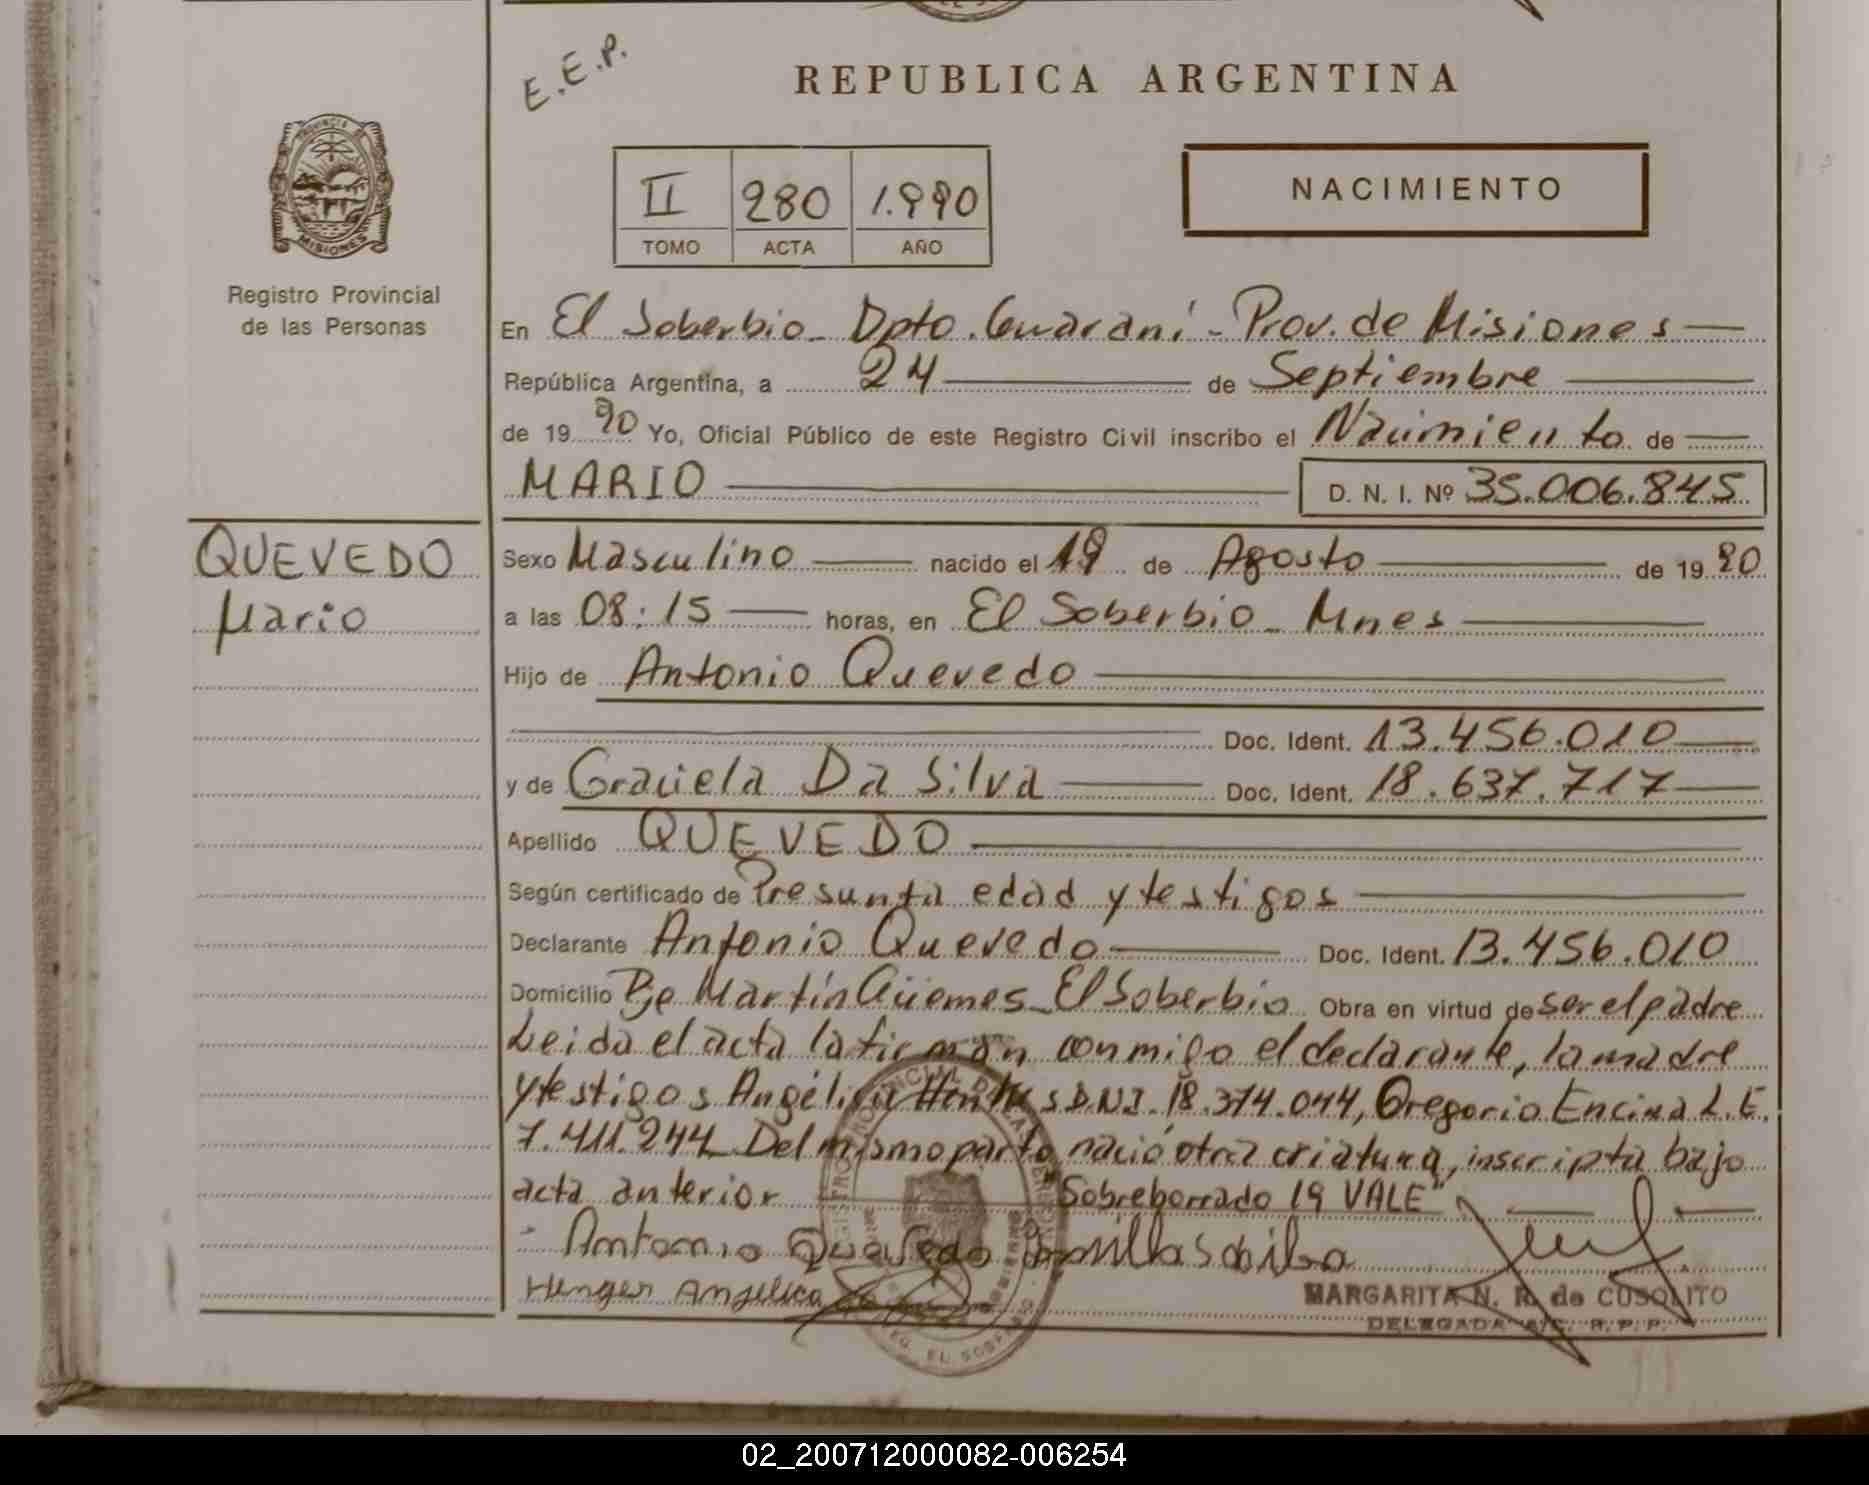 E.E.P.
REPUBLICA ARGENTINA
II 280 1.990
TOMO ACTA AÑO
NACIMIENTO
PROVINCIA DE
MISIONES
Registro Provincial
de las Personas
QUEVEDO
Mario
En El Soberbio - Dpto. Guaraní - Prov. de Misiones
República Argentina, a 24 de Septiembre
de 19 90 Yo, Oficial Público de este Registro Civil inscribo el Nacimiento de
MARIO D. N. I. Nº 35.006.845
Sexo Masculino nacido el 19 de Agosto de 19 90
a las 08:15 horas, en El Soberbio - Mnes
Hijo de Antonio Quevedo
Doc. Ident. 13.456.010
y de Graciela Da Silva Doc. Ident. 18.637.717
Apellido QUEVEDO
Según certificado de Presunta edad y testigos
Declarante Antonio Quevedo Doc. Ident. 13.456.010
Domicilio Pje Martín Güemes - El Soberbio Obra en virtud de ser el padre
Leida el acta la firman conmigo el declarante, la madre
y testigos Angélica D.N.I. 18.374.044, Gregorio Encina L.E.
7.411.244 Del mismo parto nació otra criatura, inscripta bajo
acta anterior "Sobreborrado 19 VALE"
Antonio Quevedo
Henger Angelica
MARGARITA N. R. de CUSOLITO
DELEGADA A/C. R. P. P.
02_200712000082-006254